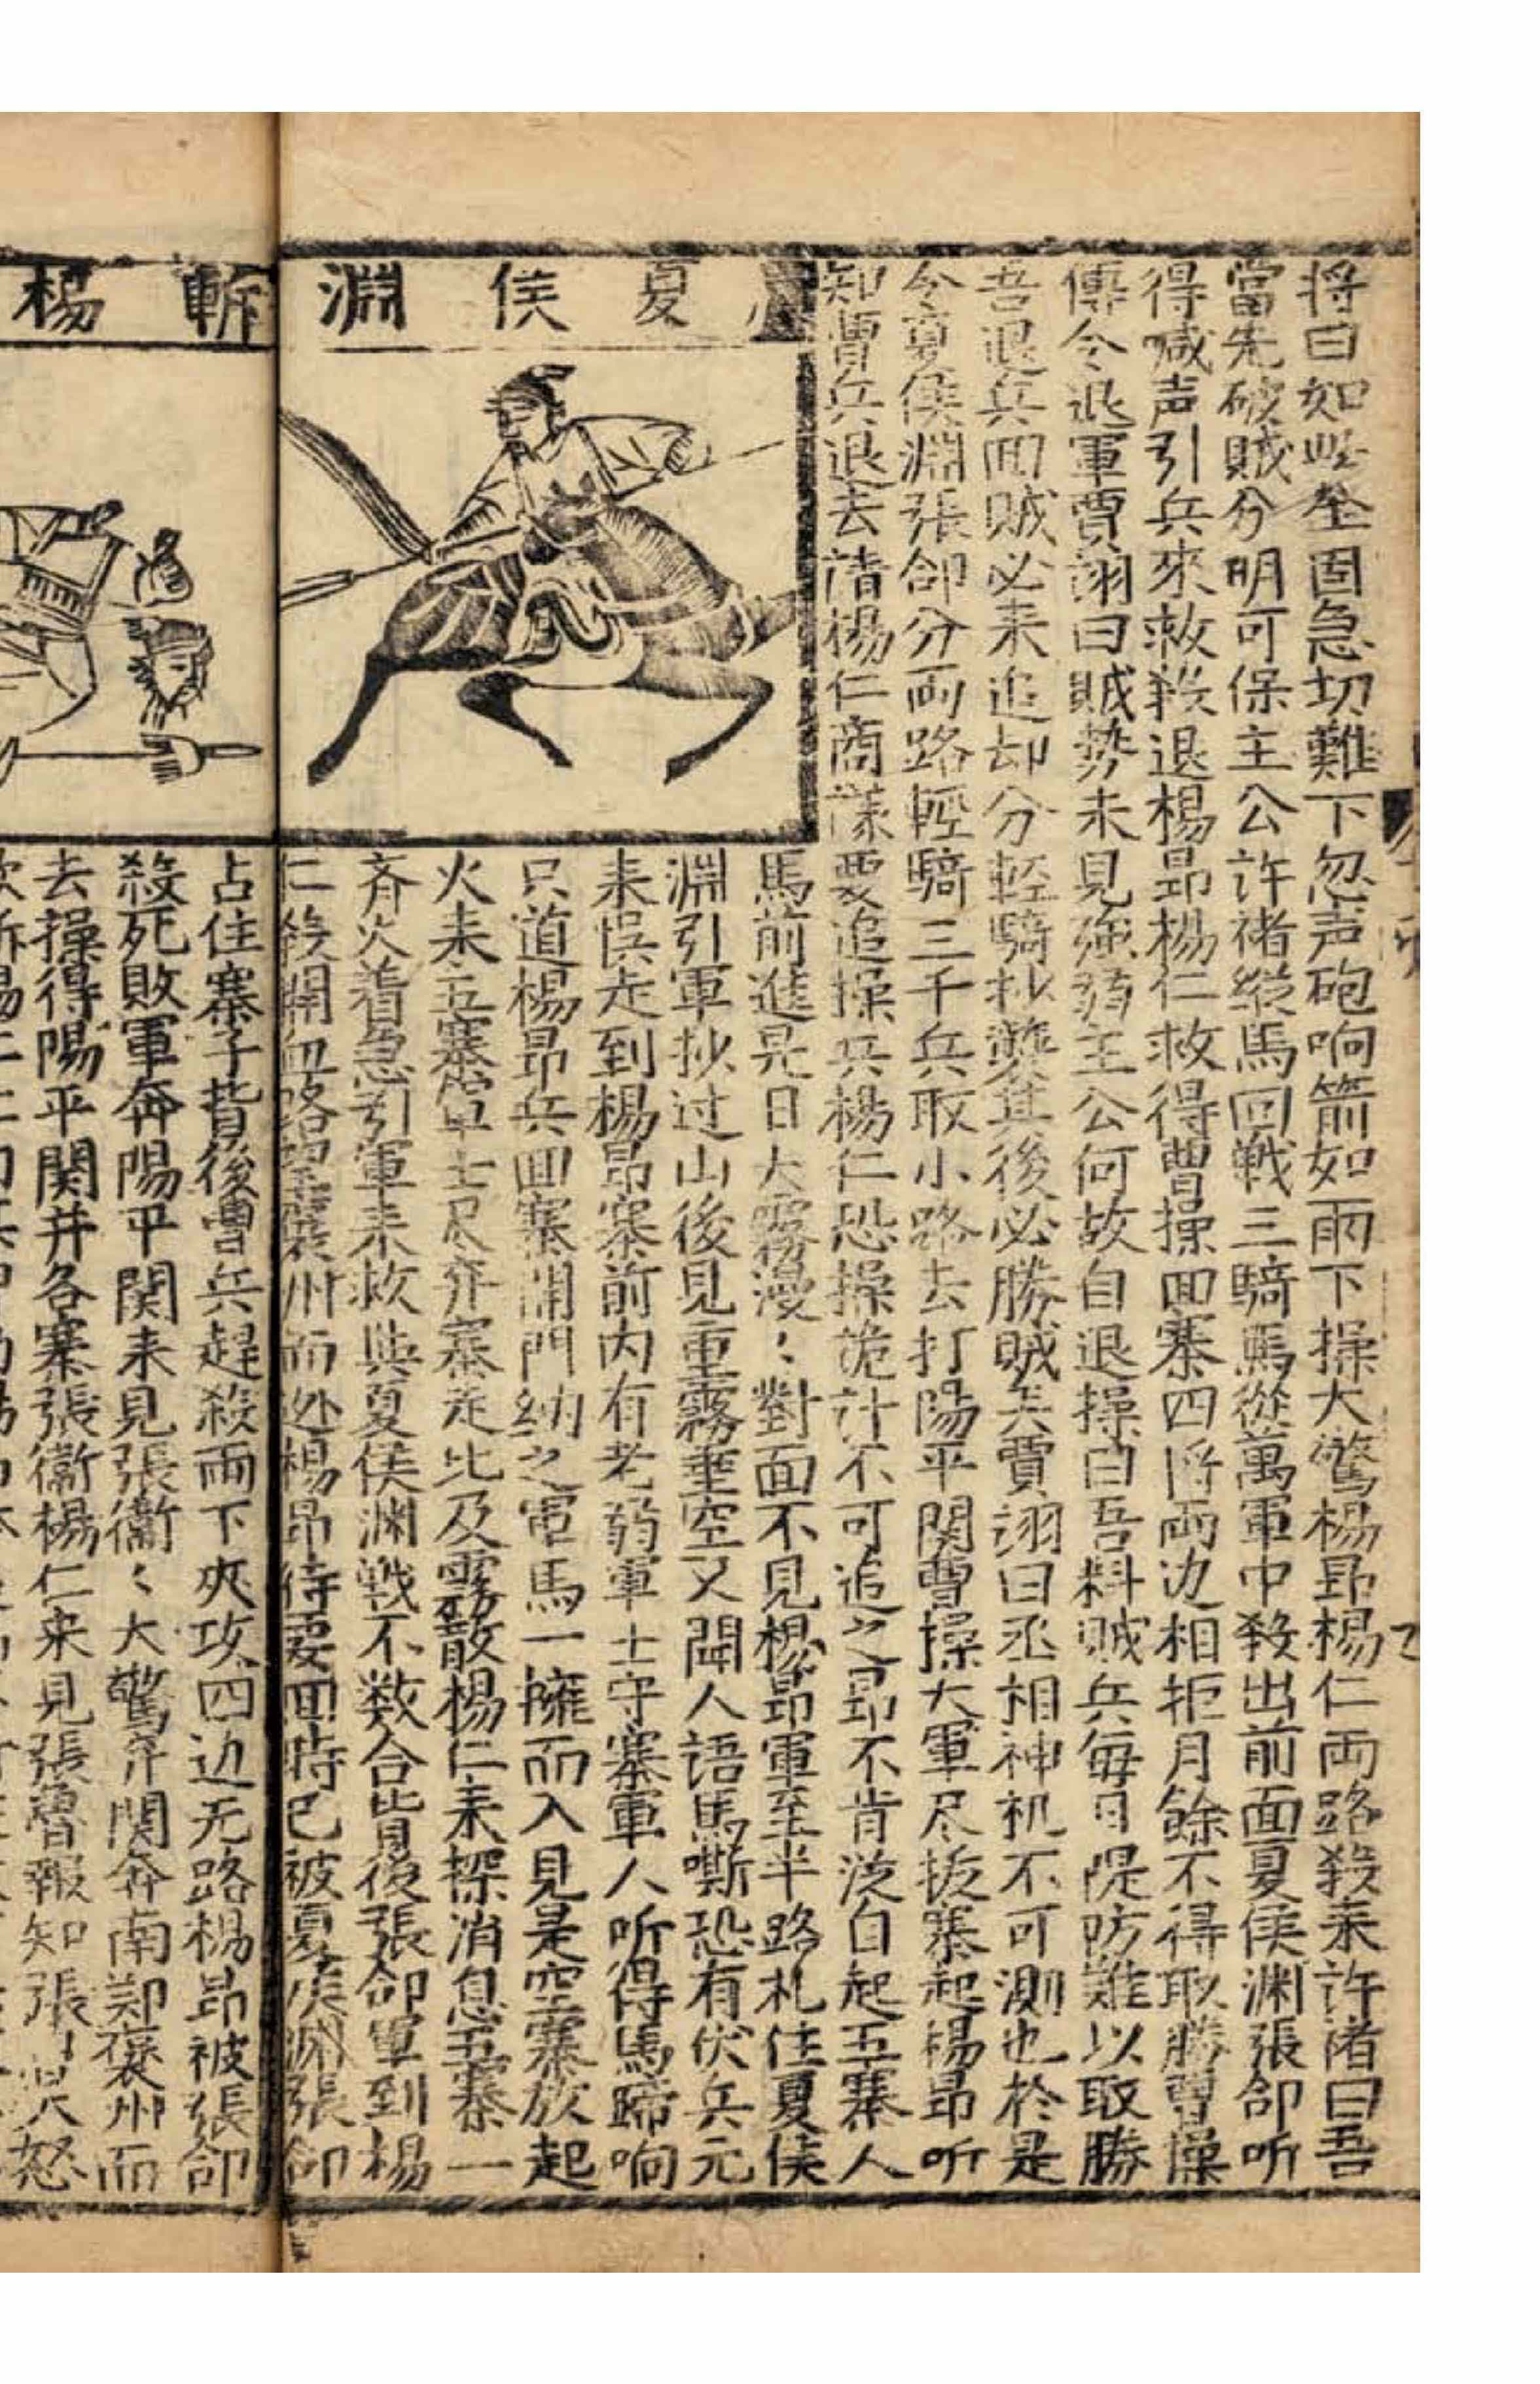 将曰如此坚固急切難下忽声砲响箭如雨下操大驚楊昻楊仁両路殺来許禇曰吾
當先破賊分明可保主公許褚縱馬回戦三騎馬從萬軍中殺出前面夏侯渊張郃听
得喊声引兵來救殺退楊昻楊仁救得曹操回寨四将両边相拒月餘不得取勝曹操
傳令退軍賈詡曰賊势未見強弱主公何故自退操曰吾料賊兵每日隄防難以取勝
吾退兵回賊必来追却分輕騎抄襲其後必勝賊矣賈詡曰丞相神机不可測也於是
令夏侯淵張郃分両路輕騎三千兵取小路去打陽平関曹操大軍尽抜寨起楊昻听
知曹兵退去請楊仁商議要追操兵楊仁恐操詭計不可追之昻不肯从自起五寨人
夏侯淵
馬前進是日大霧漫〻對面不見楊昻軍至半路札住夏侯
淵引軍抄过山後見重霧垂空又聞人語馬嘶恐有伏兵元
来悞走到楊昻寨前内有老弱軍士守寨軍人听得馬蹄响
只道楊昻兵回寨開門納之軍馬一擁而入見是空寨放起
火来五寨軍士尽弃寨走比及霧散楊仁来探消息五寨一
斉火着急引軍来救與夏侯渊戦不数合背後張郃軍到楊
仁殺開血路望襄州而迯楊昻待要回時已被夏侯渊張郃
斬楊
占住寨子背後曹兵趕殺両下夾攻四边无路楊昻被張郃
殺死敗軍奔陽平関来見張衞〻大驚弃関奔南鄭褒州而
去操得陽平関并各寨張衞楊仁来見張魯報知張魯大怒